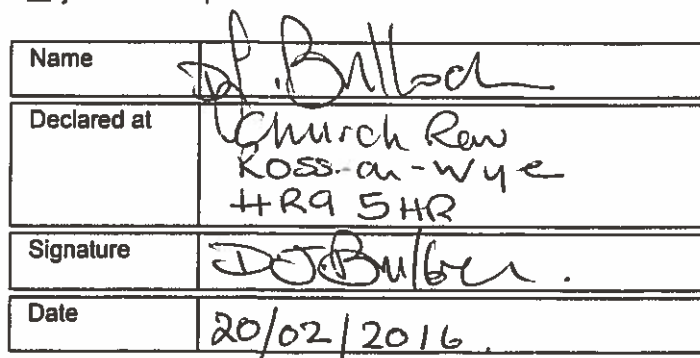 Name D J. Bulloch
Declared at Church Row
Ross-on-Wye
HR9 5HR
Signature
Date 20/02/2016.